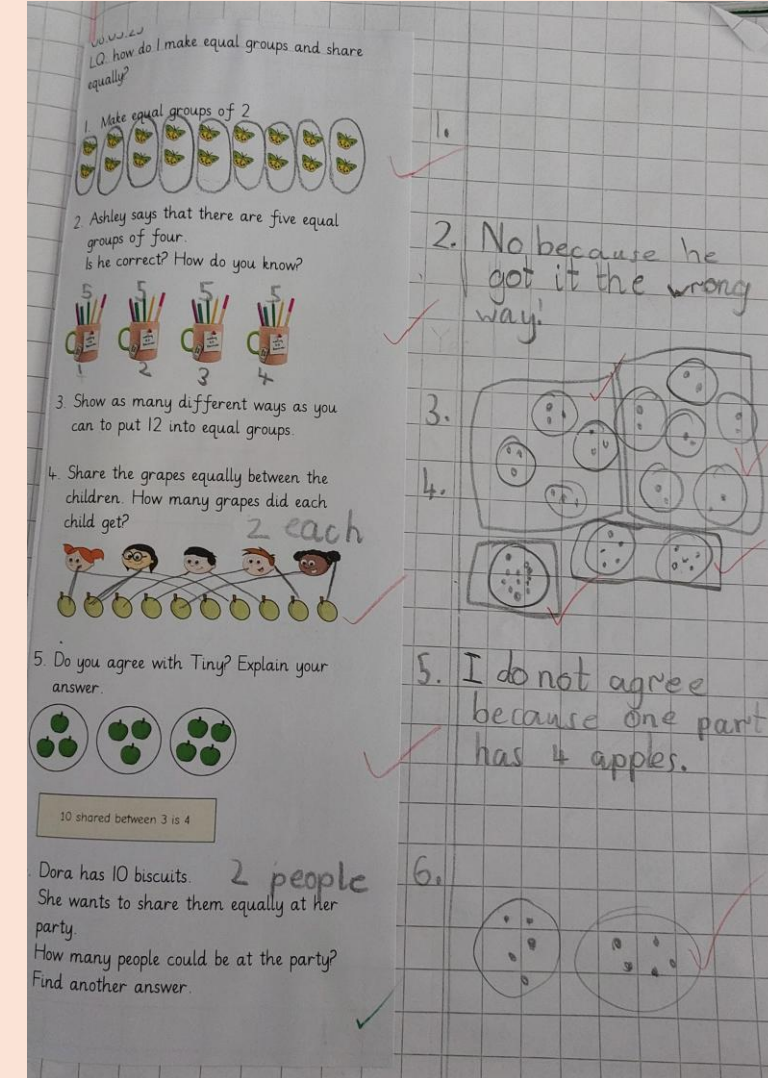 LQ: how do I make equal groups and share
equally?
1. Make equal groups of 2
2. Ashley says that there are five equal
groups of four.
Is he correct? How do you know?
5 5 5 5
1 2 3 4
3. Show as many different ways as you
can to put 12 into equal groups.
4. Share the grapes equally between the
children. How many grapes did each
child get?
2 each
5. Do you agree with Tiny? Explain your
answer.
10 shared between 3 is 4
Dora has 10 biscuits.
2 people
She wants to share them equally at her
party.
How many people could be at the party?
Find another answer.
1.
2. No because he
got it the wrong
way!
3.
4.
5. I do not agree
because one part
has 4 apples.
6.